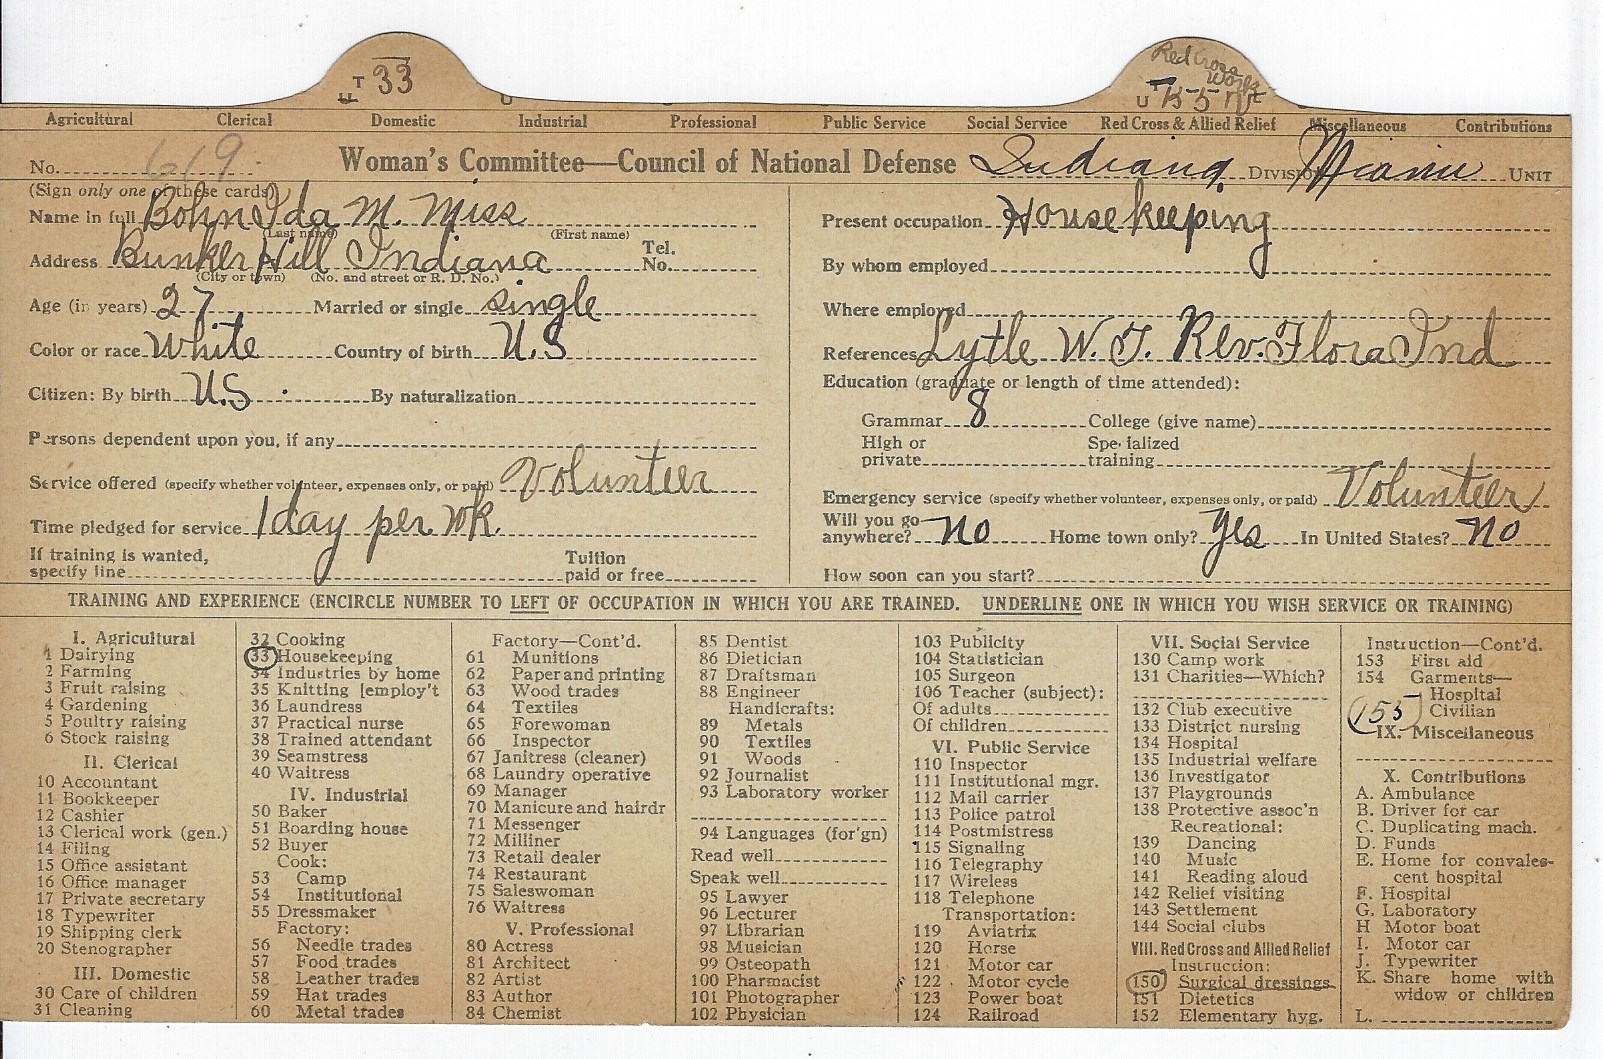 T 33
U
Red Cross
Work
T
U
Agricultural Clerical Domestic Industrial Professional Public Service Social Service Red Cross & Allied Relief Miscellaneous Contributions
No. 619. Woman's Committee—Council of National Defense Indiana Division Miami Unit
(Sign only one of these cards)
Name in full Bohn Ida M. Miss
(Last name) (First name)
Address Bunker Hill Indiana Tel. No.
(City or town) (No. and street or R. D. No.)
Age (in years) 27 Married or single single
Color or race White Country of birth U.S
Citizen: By birth U.S. By naturalization
Persons dependent upon you, if any
Service offered (specify whether volunteer, expenses only, or paid) Volunteer
Time pledged for service 1 day per wk.
If training is wanted,
specify line Tuition paid or free
Present occupation Housekeeping
By whom employed
Where employed
References Lytle W. T. Rev. Flora Ind
Education (graduate or length of time attended):
Grammar 8 College (give name)
High or private Specialized training
Emergency service (specify whether volunteer, expenses only, or paid) Volunteer
Will you go anywhere? no Home town only? Yes In United States? no
How soon can you start?
TRAINING AND EXPERIENCE (ENCIRCLE NUMBER TO LEFT OF OCCUPATION IN WHICH YOU ARE TRAINED. UNDERLINE ONE IN WHICH YOU WISH SERVICE OR TRAINING)
I. Agricultural
1 Dairying
2 Farming
3 Fruit raising
4 Gardening
5 Poultry raising
6 Stock raising
II. Clerical
10 Accountant
11 Bookkeeper
12 Cashier
13 Clerical work (gen.)
14 Filing
15 Office assistant
16 Office manager
17 Private secretary
18 Typewriter
19 Shipping clerk
20 Stenographer
III. Domestic
30 Care of children
31 Cleaning
32 Cooking
33 Housekeeping
34 Industries by home
35 Knitting [employ't
36 Laundress
37 Practical nurse
38 Trained attendant
39 Seamstress
40 Waitress
IV. Industrial
50 Baker
51 Boarding house
52 Buyer
Cook:
53 Camp
54 Institutional
55 Dressmaker
Factory:
56 Needle trades
57 Food trades
58 Leather trades
59 Hat trades
60 Metal trades
Factory—Cont'd.
61 Munitions
62 Paper and printing
63 Wood trades
64 Textiles
65 Forewoman
66 Inspector
67 Janitress (cleaner)
68 Laundry operative
69 Manager
70 Manicure and hairdr
71 Messenger
72 Milliner
73 Retail dealer
74 Restaurant
75 Saleswoman
76 Waitress
V. Professional
80 Actress
81 Architect
82 Artist
83 Author
84 Chemist
85 Dentist
86 Dietician
87 Draftsman
88 Engineer
Handicrafts:
89 Metals
90 Textiles
91 Woods
92 Journalist
93 Laboratory worker
94 Languages (for'gn)
Read well
Speak well
95 Lawyer
96 Lecturer
97 Librarian
98 Musician
99 Osteopath
100 Pharmacist
101 Photographer
102 Physician
103 Publicity
104 Statistician
105 Surgeon
106 Teacher (subject):
Of adults
Of children
VI. Public Service
110 Inspector
111 Institutional mgr.
112 Mail carrier
113 Police patrol
114 Postmistress
115 Signaling
116 Telegraphy
117 Wireless
118 Telephone
Transportation:
119 Aviatrix
120 Horse
121 Motor car
122 Motor cycle
123 Power boat
124 Railroad
VII. Social Service
130 Camp work
131 Charities—Which?
132 Club executive
133 District nursing
134 Hospital
135 Industrial welfare
136 Investigator
137 Playgrounds
138 Protective assoc'n
Recreational:
139 Dancing
140 Music
141 Reading aloud
142 Relief visiting
143 Settlement
144 Social clubs
VIII. Red Cross and Allied Relief
Instruction:
150 Surgical dressings
151 Dietetics
152 Elementary hyg.
Instruction—Cont'd.
153 First aid
154 Garments—
Hospital
155 Civilian
IX. Miscellaneous
X. Contributions
A. Ambulance
B. Driver for car
C. Duplicating mach.
D. Funds
E. Home for convales-
cent hospital
F. Hospital
G. Laboratory
H Motor boat
I. Motor car
J. Typewriter
K. Share home with
widow or children
L.